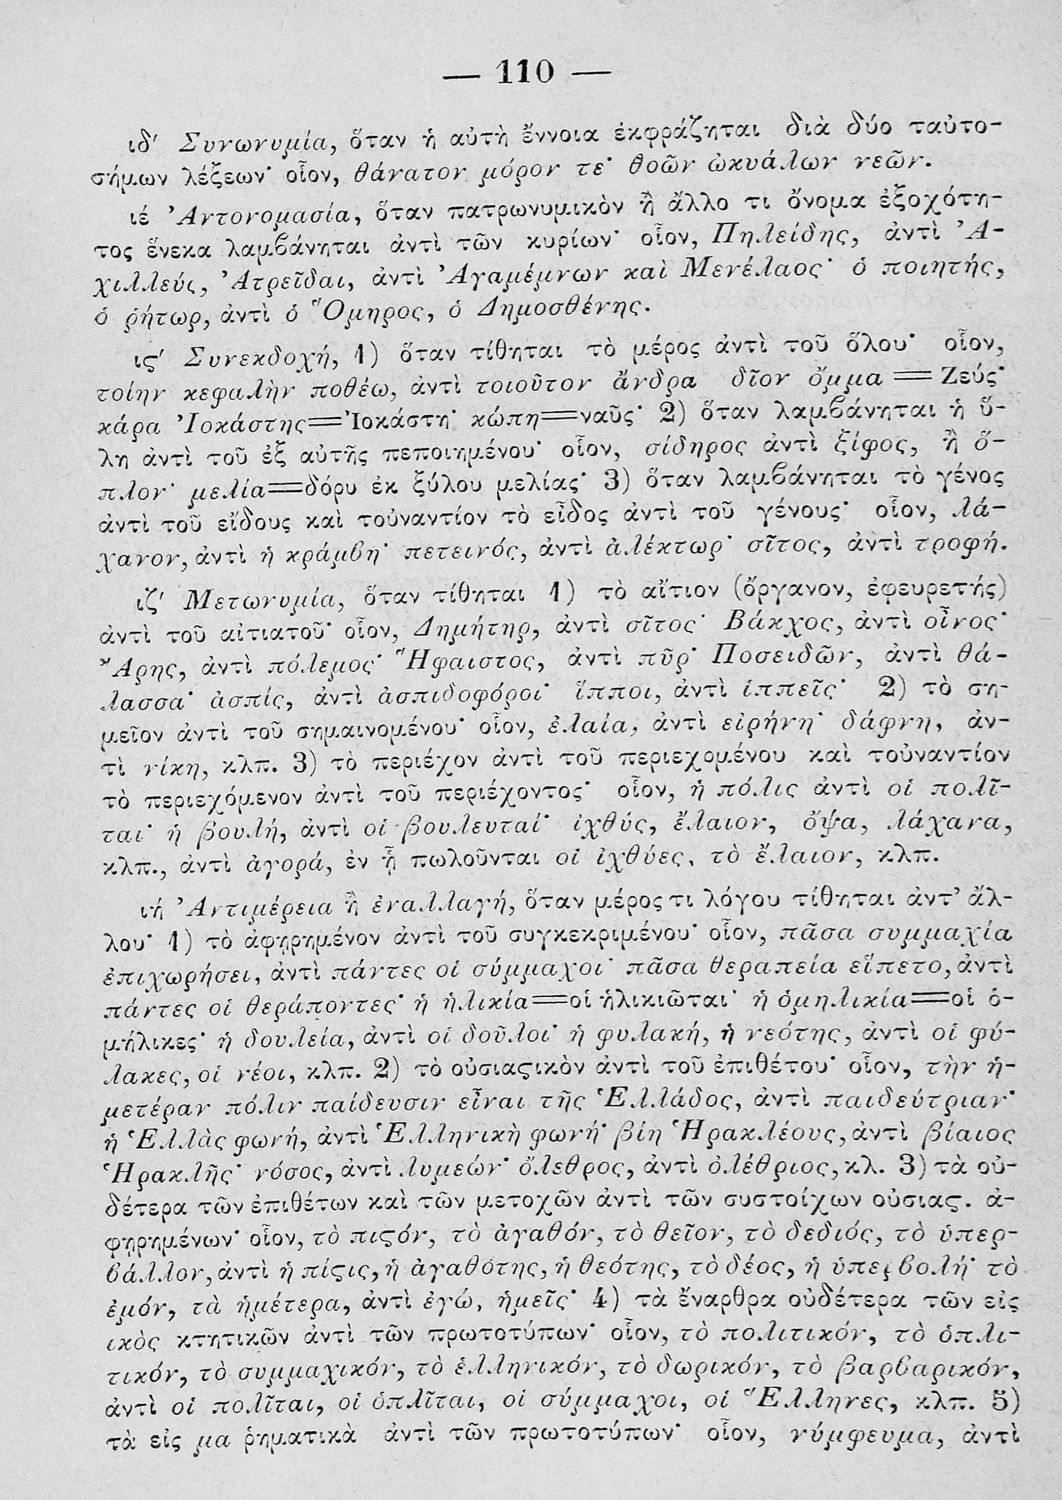 — 110 —
ιδ' Συνωνυμία, ὅταν ἡ αὐτὴ ἔννοια ἐκφράζηται διὰ δύο ταὐτο-
σήμων λέξεων· οἷον, θάνατον μόρον τε· θοῶν ὠκυάλων νεῶν.
ιέ Ἀντονομασία, ὅταν πατρωνυμικὸν ἢ ἄλλο τι ὄνομα ἐξοχότη-
τος ἕνεκα λαμβάνηται ἀντὶ τῶν κυρίων· οἷον, Πηλείδης, ἀντὶ Ἀ-
χιλλεύς, Ἀτρεῖδαι, ἀντὶ Ἀγαμέμνων καὶ Μενέλαος· ὁ ποιητής,
ὁ ῥήτωρ, ἀντὶ ὁ Ὅμηρος, ὁ Δημοσθένης.
ις' Συνεκδοχή, 1) ὅταν τίθηται τὸ μέρος ἀντὶ τοῦ ὅλου· οἷον,
τοίην κεφαλὴν ποθέω, ἀντὶ τοιοῦτον ἄνδρα δῖον ὄμμα = Ζεύς·
κάρα Ἰοκάστης=Ἰοκάστη· κώπη=ναῦς· 2) ὅταν λαμβάνηται ἡ ὕ-
λη ἀντὶ τοῦ ἐξ αὐτῆς πεποιημένου· οἷον, σίδηρος ἀντὶ ξίφος, ἢ ὅ-
πλον· μελία=δόρυ ἐκ ξύλου μελίας· 3) ὅταν λαμβάνηται τὸ γένος
ἀντὶ τοῦ εἴδους καὶ τοὐναντίον τὸ εἶδος ἀντὶ τοῦ γένους· οἷον, λά-
χανον, ἀντὶ ἡ κράμβη· πετεινός, ἀντὶ ἀλέκτωρ· σῖτος, ἀντὶ τροφή.
ιζ' Μετωνυμία, ὅταν τίθηται 1) τὸ αἴτιον (ὄργανον, ἐφευρετής)
ἀντὶ τοῦ αἰτιατοῦ· οἷον, Δημήτηρ, ἀντὶ σῖτος· Βάκχος, ἀντὶ οἶνος·
Ἄρης, ἀντὶ πόλεμος· Ἥφαιστος, ἀντὶ πῦρ· Ποσειδῶν, ἀντὶ θά-
λασσα· ἀσπίς, ἀντὶ ἀσπιδοφόροι· ἵπποι, ἀντὶ ἱππεῖς· 2) τὸ ση-
μεῖον ἀντὶ τοῦ σημαινομένου· οἷον, ἐλαία, ἀντὶ εἰρήνη· δάφνη, ἀν-
τὶ νίκη, κλπ. 3) τὸ περιέχον ἀντὶ τοῦ περιεχομένου καὶ τοὐναντίον
τὸ περιεχόμενον ἀντὶ τοῦ περιέχοντος· οἷον, ἡ πόλις ἀντὶ οἱ πολῖ-
ται· ἡ βουλή, ἀντὶ οἱ βουλευταί· ἰχθύς, ἔλαιον, ὄψα, λάχανα,
κλπ., ἀντὶ ἀγορά, ἐν ᾗ πωλοῦνται οἱ ἰχθύες, τὸ ἔλαιον, κλπ.
ιή Ἀντιμέρεια ἢ ἐναλλαγή, ὅταν μέρος τι λόγου τίθηται ἀντ' ἄλ-
λου· 1) τὸ ἀφῃρημένον ἀντὶ τοῦ συγκεκριμένου· οἷον, πᾶσα συμμαχία
ἐπιχωρήσει, ἀντὶ πάντες οἱ σύμμαχοι· πᾶσα θεραπεία εἵπετο, ἀντὶ
πάντες οἱ θεράποντες· ἡ ἡλικία=οἱ ἡλικιῶται· ἡ ὁμηλικία=οἱ ὁ-
μήλικες· ἡ δουλεία, ἀντὶ οἱ δοῦλοι· ἡ φυλακή, ἡ νεότης, ἀντὶ οἱ φύ-
λακες, οἱ νέοι, κλπ. 2) τὸ οὐσιαστικὸν ἀντὶ τοῦ ἐπιθέτου· οἷον, τὴν ἡ-
μετέραν πόλιν παίδευσιν εἶναι τῆς Ἑλλάδος, ἀντὶ παιδεύτριαν·
ἡ Ἑλλὰς φωνή, ἀντὶ Ἑλληνικὴ φωνή· βίη Ἡρακλέους, ἀντὶ βίαιος
Ἡρακλῆς· νόσος, ἀντὶ λυμεών· ὄλεθρος, ἀντὶ ὀλέθριος, κλ. 3) τὰ οὐ-
δέτερα τῶν ἐπιθέτων καὶ τῶν μετοχῶν ἀντὶ τῶν συστοίχων οὐσιαστ. ἀ-
φῃρημένων· οἷον, τὸ πιστόν, τὸ ἀγαθόν, τὸ θεῖον, τὸ δεδιός, τὸ ὑπερ-
βάλλον, ἀντὶ ἡ πίστις, ἡ ἀγαθότης, ἡ θεότης, τὸ δέος, ἡ ὑπερβολή· τὸ
ἐμόν, τὰ ἡμέτερα, ἀντὶ ἐγώ, ἡμεῖς· 4) τὰ ἔναρθρα οὐδέτερα τῶν εἰς
ικὸς κτητικῶν ἀντὶ τῶν πρωτοτύπων· οἷον, τὸ πολιτικόν, τὸ ὁπλι-
τικόν, τὸ συμμαχικόν, τὸ ἑλληνικόν, τὸ δωρικόν, τὸ βαρβαρικόν,
ἀντὶ οἱ πολῖται, οἱ ὁπλῖται, οἱ σύμμαχοι, οἱ Ἕλληνες, κλπ. 5)
τὰ εἰς μα ῥηματικὰ ἀντὶ τῶν πρωτοτύπων· οἷον, νύμφευμα, ἀντὶ